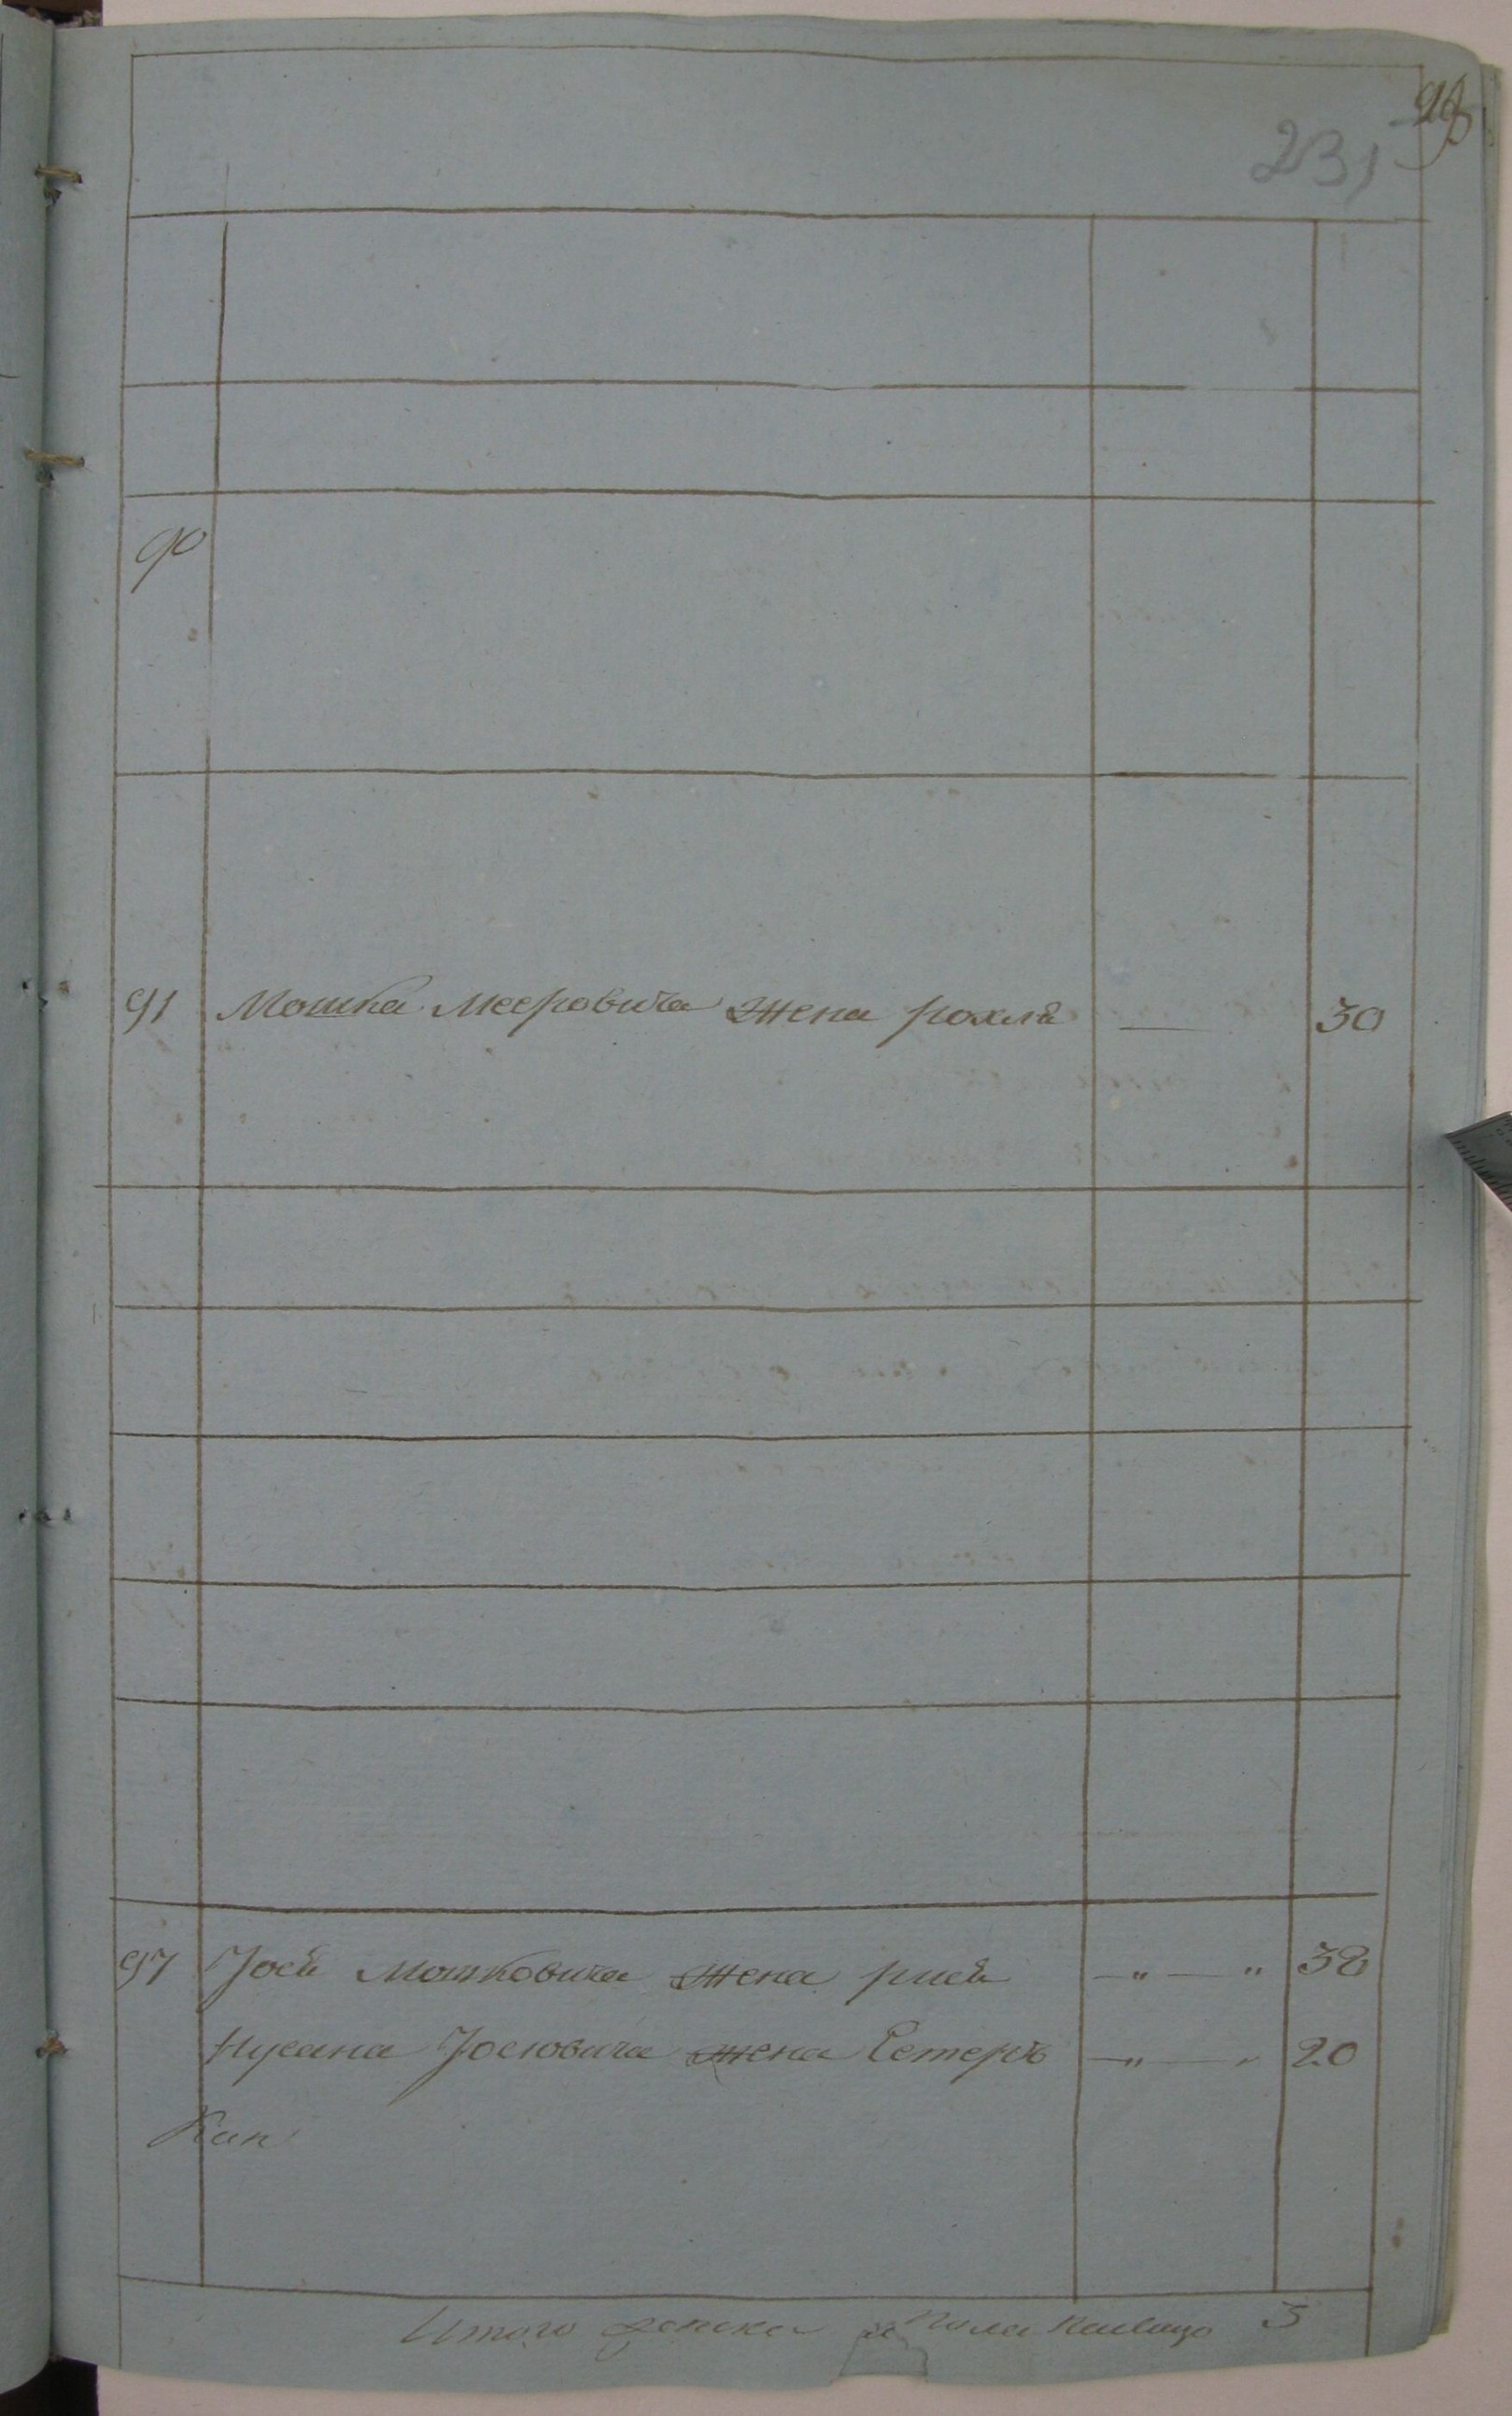 98
231
90
91 Мошка Мееровича жена рохля — 30
97 Йося Мошковича жена рися — " — " 38
Нусана Йосіовича жена Естеръ — " — " 20
Кан
Итого женска пола налицо 3